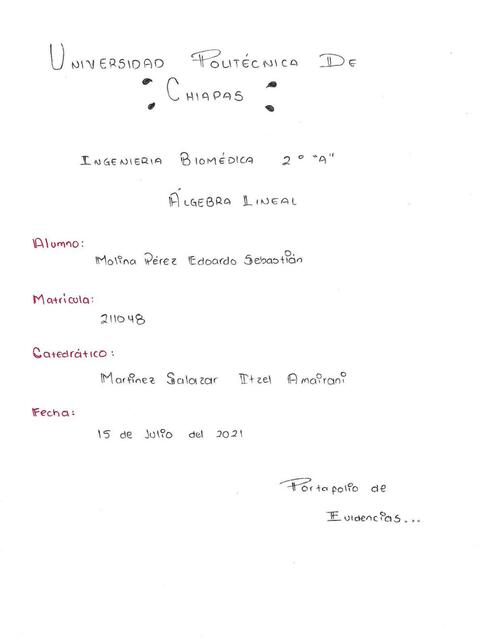 UNIVERSIDAD POLITÉCNICA DE
CHIAPAS
INGENIERIA BIOMÉDICA 2° "A"
ÁLGEBRA LINEAL
Alumno:
Molina Pérez Edoardo Sebastián
Matricula:
211048
Catedrático:
Martinez Salazar Itzel Amairani
Fecha:
15 de Julio del 2021
Portapolio de
Evidencias...